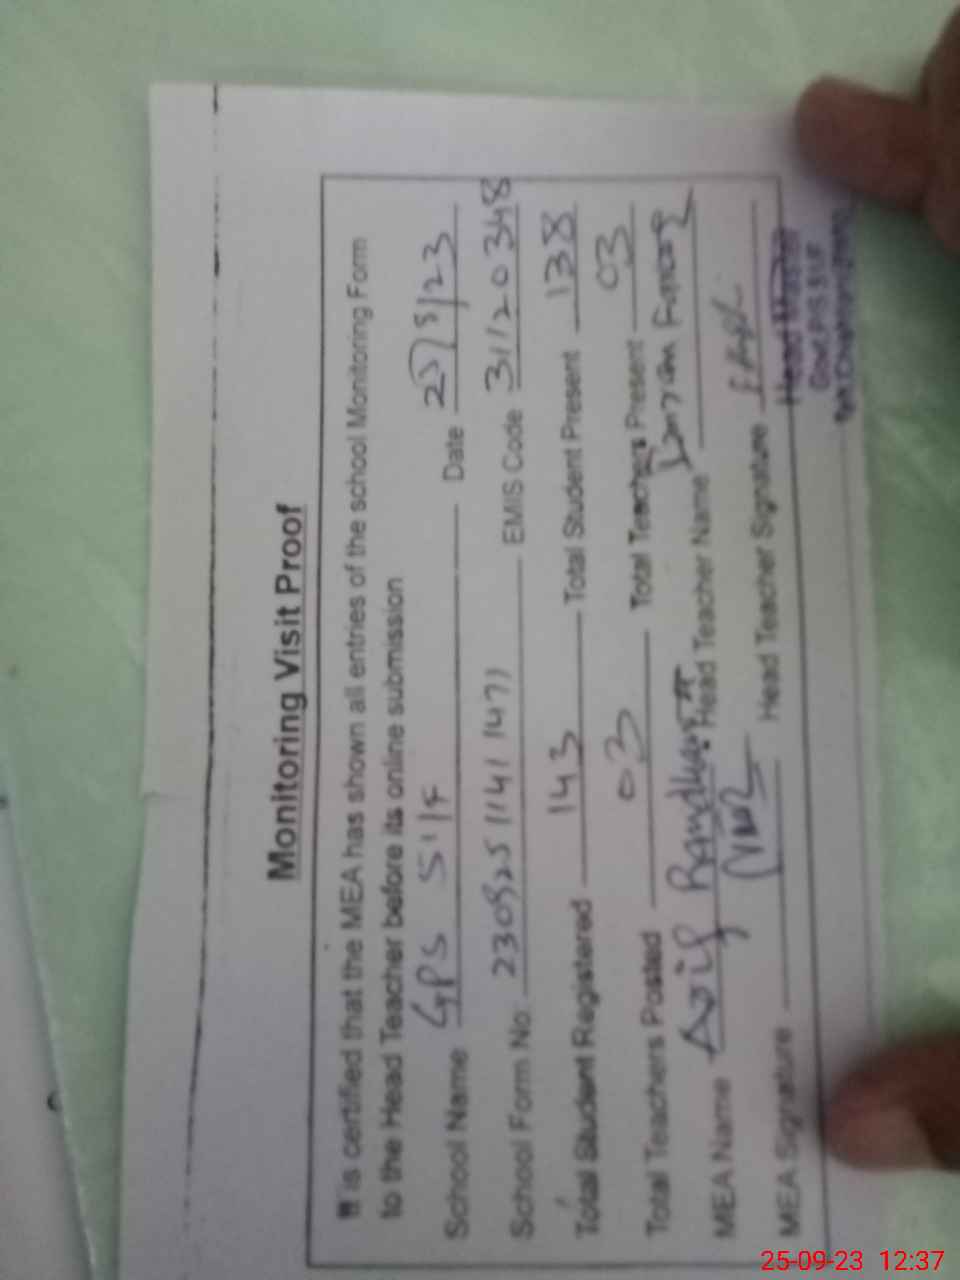 Monitoring Visit Proof
It is certified that the MEA has shown all entries of the school Monitoring Form
to the Head Teacher before its online submission
School Name GPS Silf Date 25/9/23
School Form No: 230925 1141 1471 EMIS Code 31120348
Total Student Registered 143 Total Student Present 138
Total Teachers Posted 03 Total Teachers Present 03
MEA Name Asif Randhawa Head Teacher Name Imran Farooq
MEA Signature Head Teacher Signature
Head Master
25-09-23 12:37